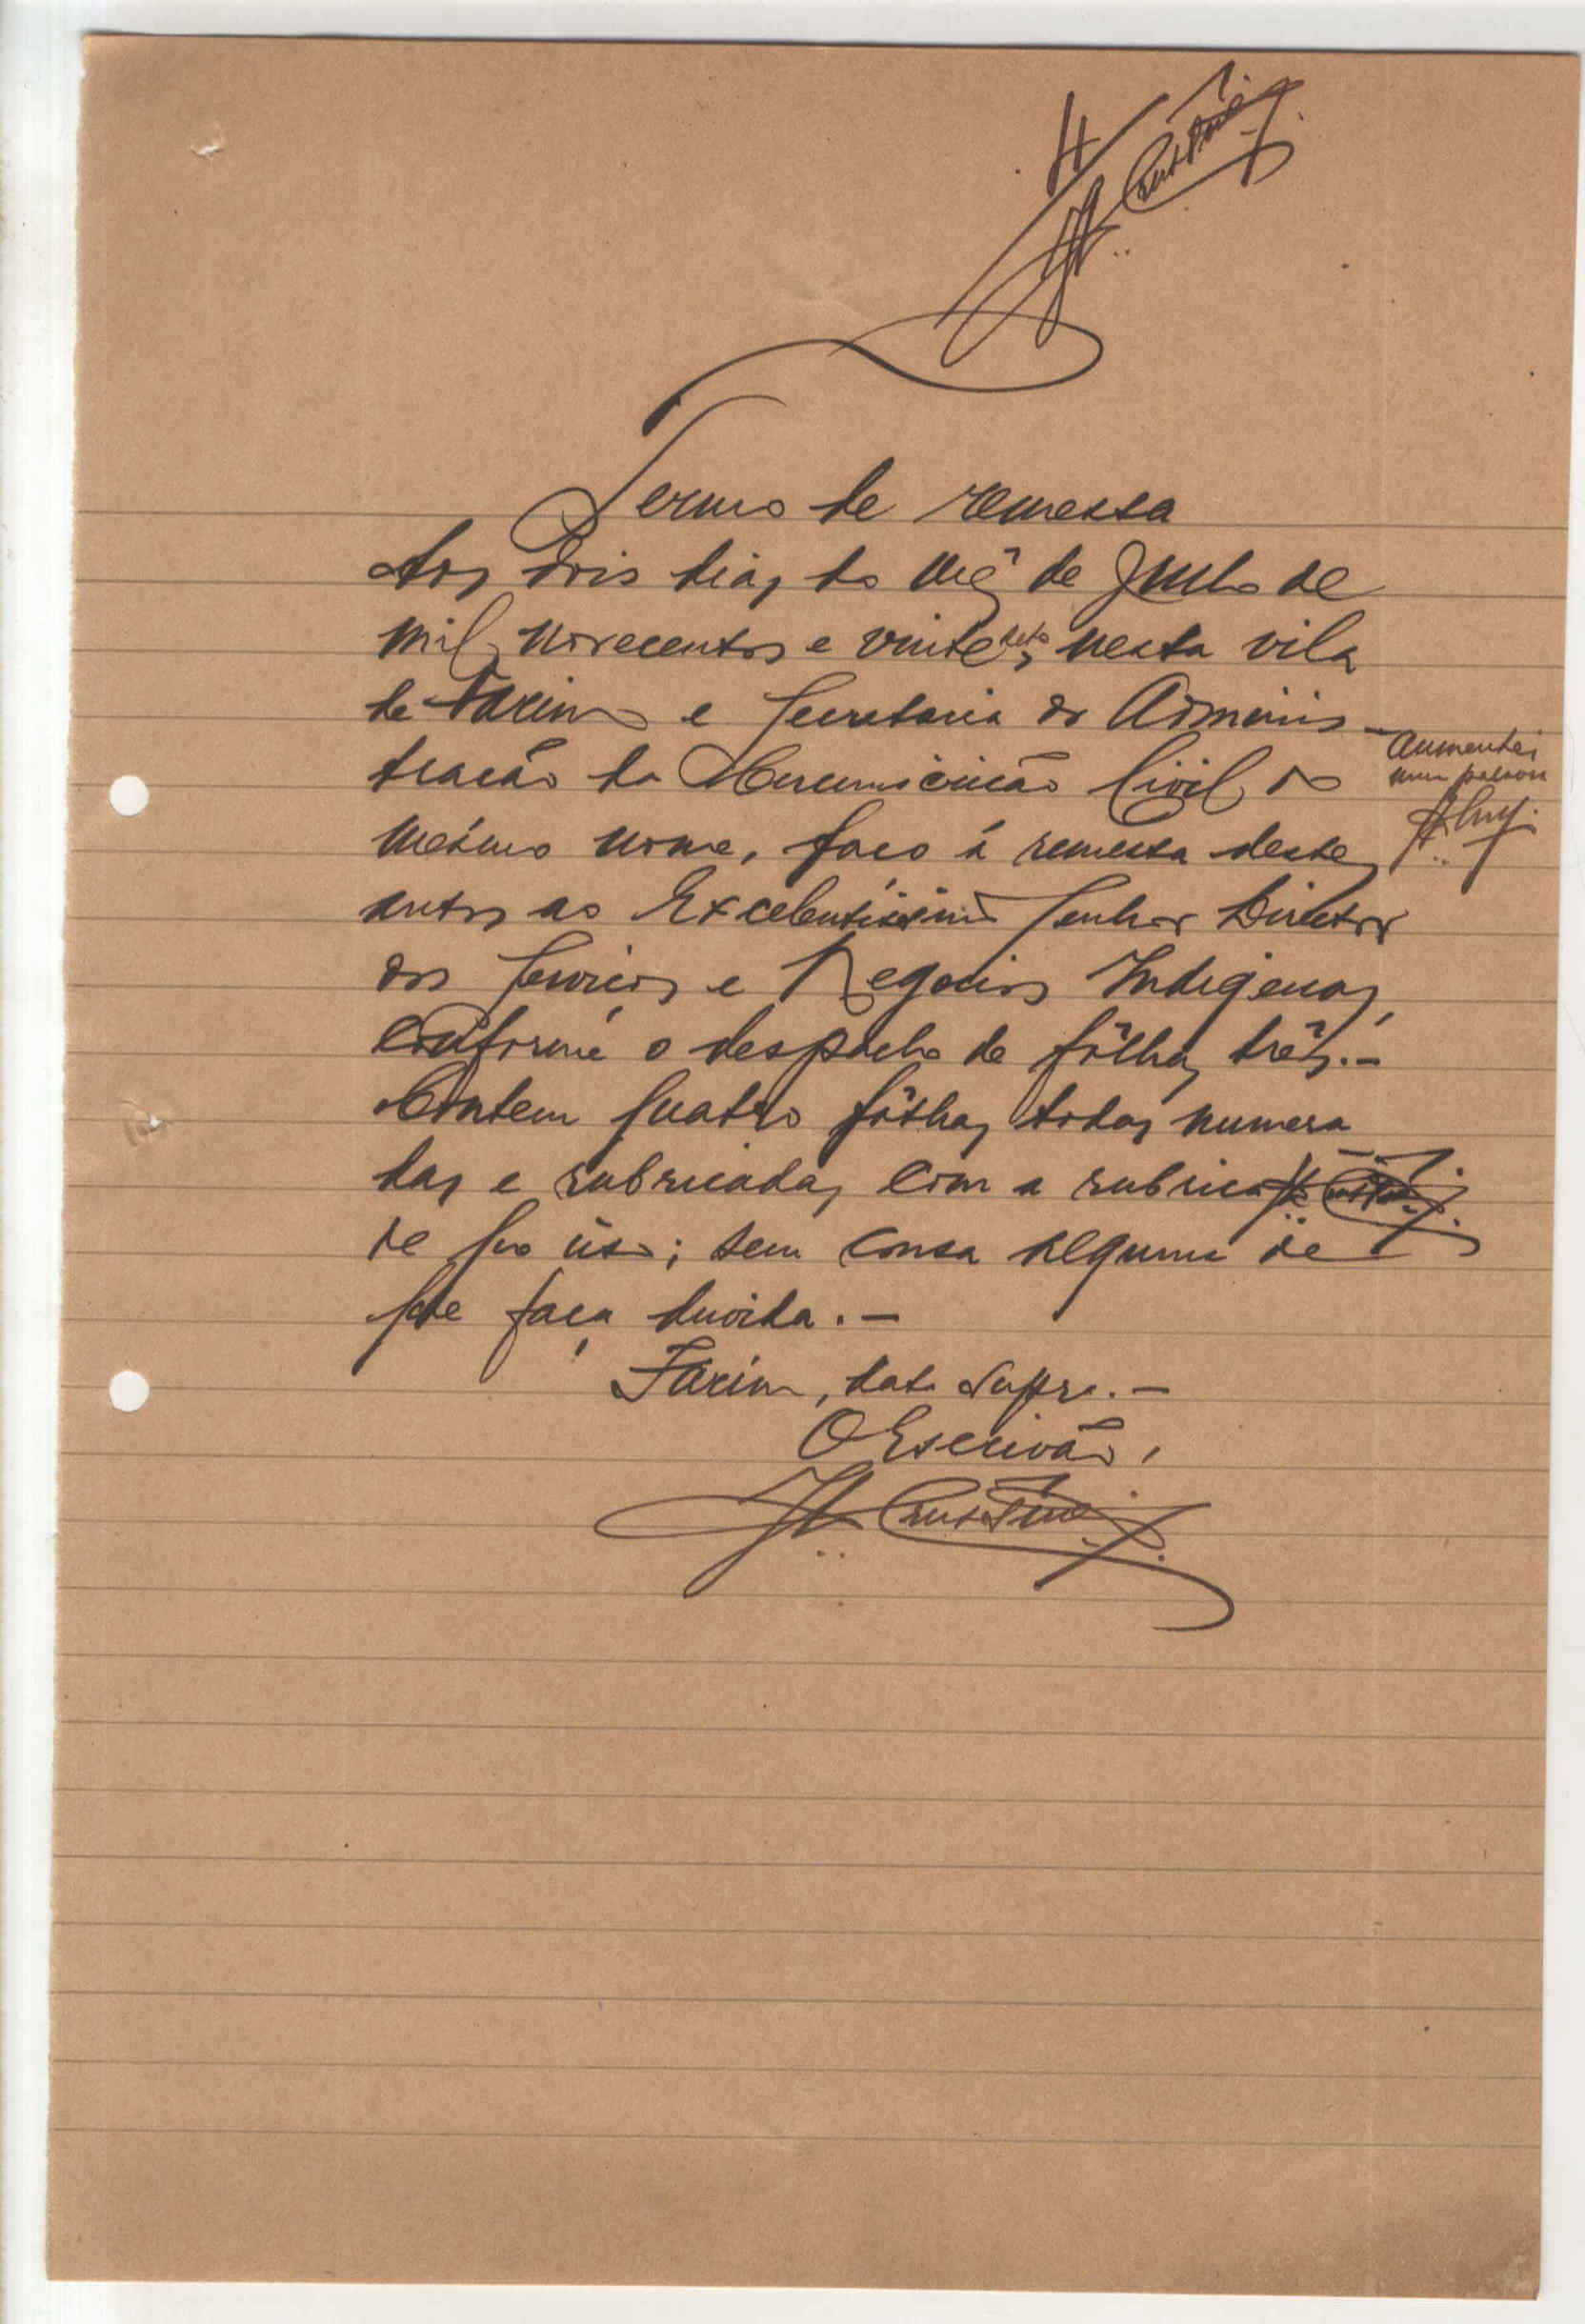 4
Termo de remessa
Aos dois dias do mês de Junho de
mil novecentos e vinte sete, nesta vila
de Farim e Secretaria da Adminis-
tração da Circunscrição Civil do
mesmo nome, faço á remessa destes
autos ao Excelentissimo Senhor Director
dos Serviços e Negocios Indigenas,
conforme o despacho de fôlhas três.-
Contem quatro fôlhas todas numera
das e rubricadas com a rubrica
de seu uso; sem cousa alguma de
que faça duvida.-
Farim, data supra.-
O Escrivão,
Aumentei
uma palavra